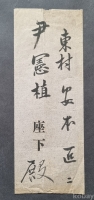 東村 安本 二
尹憲植 座下 殿
kobay